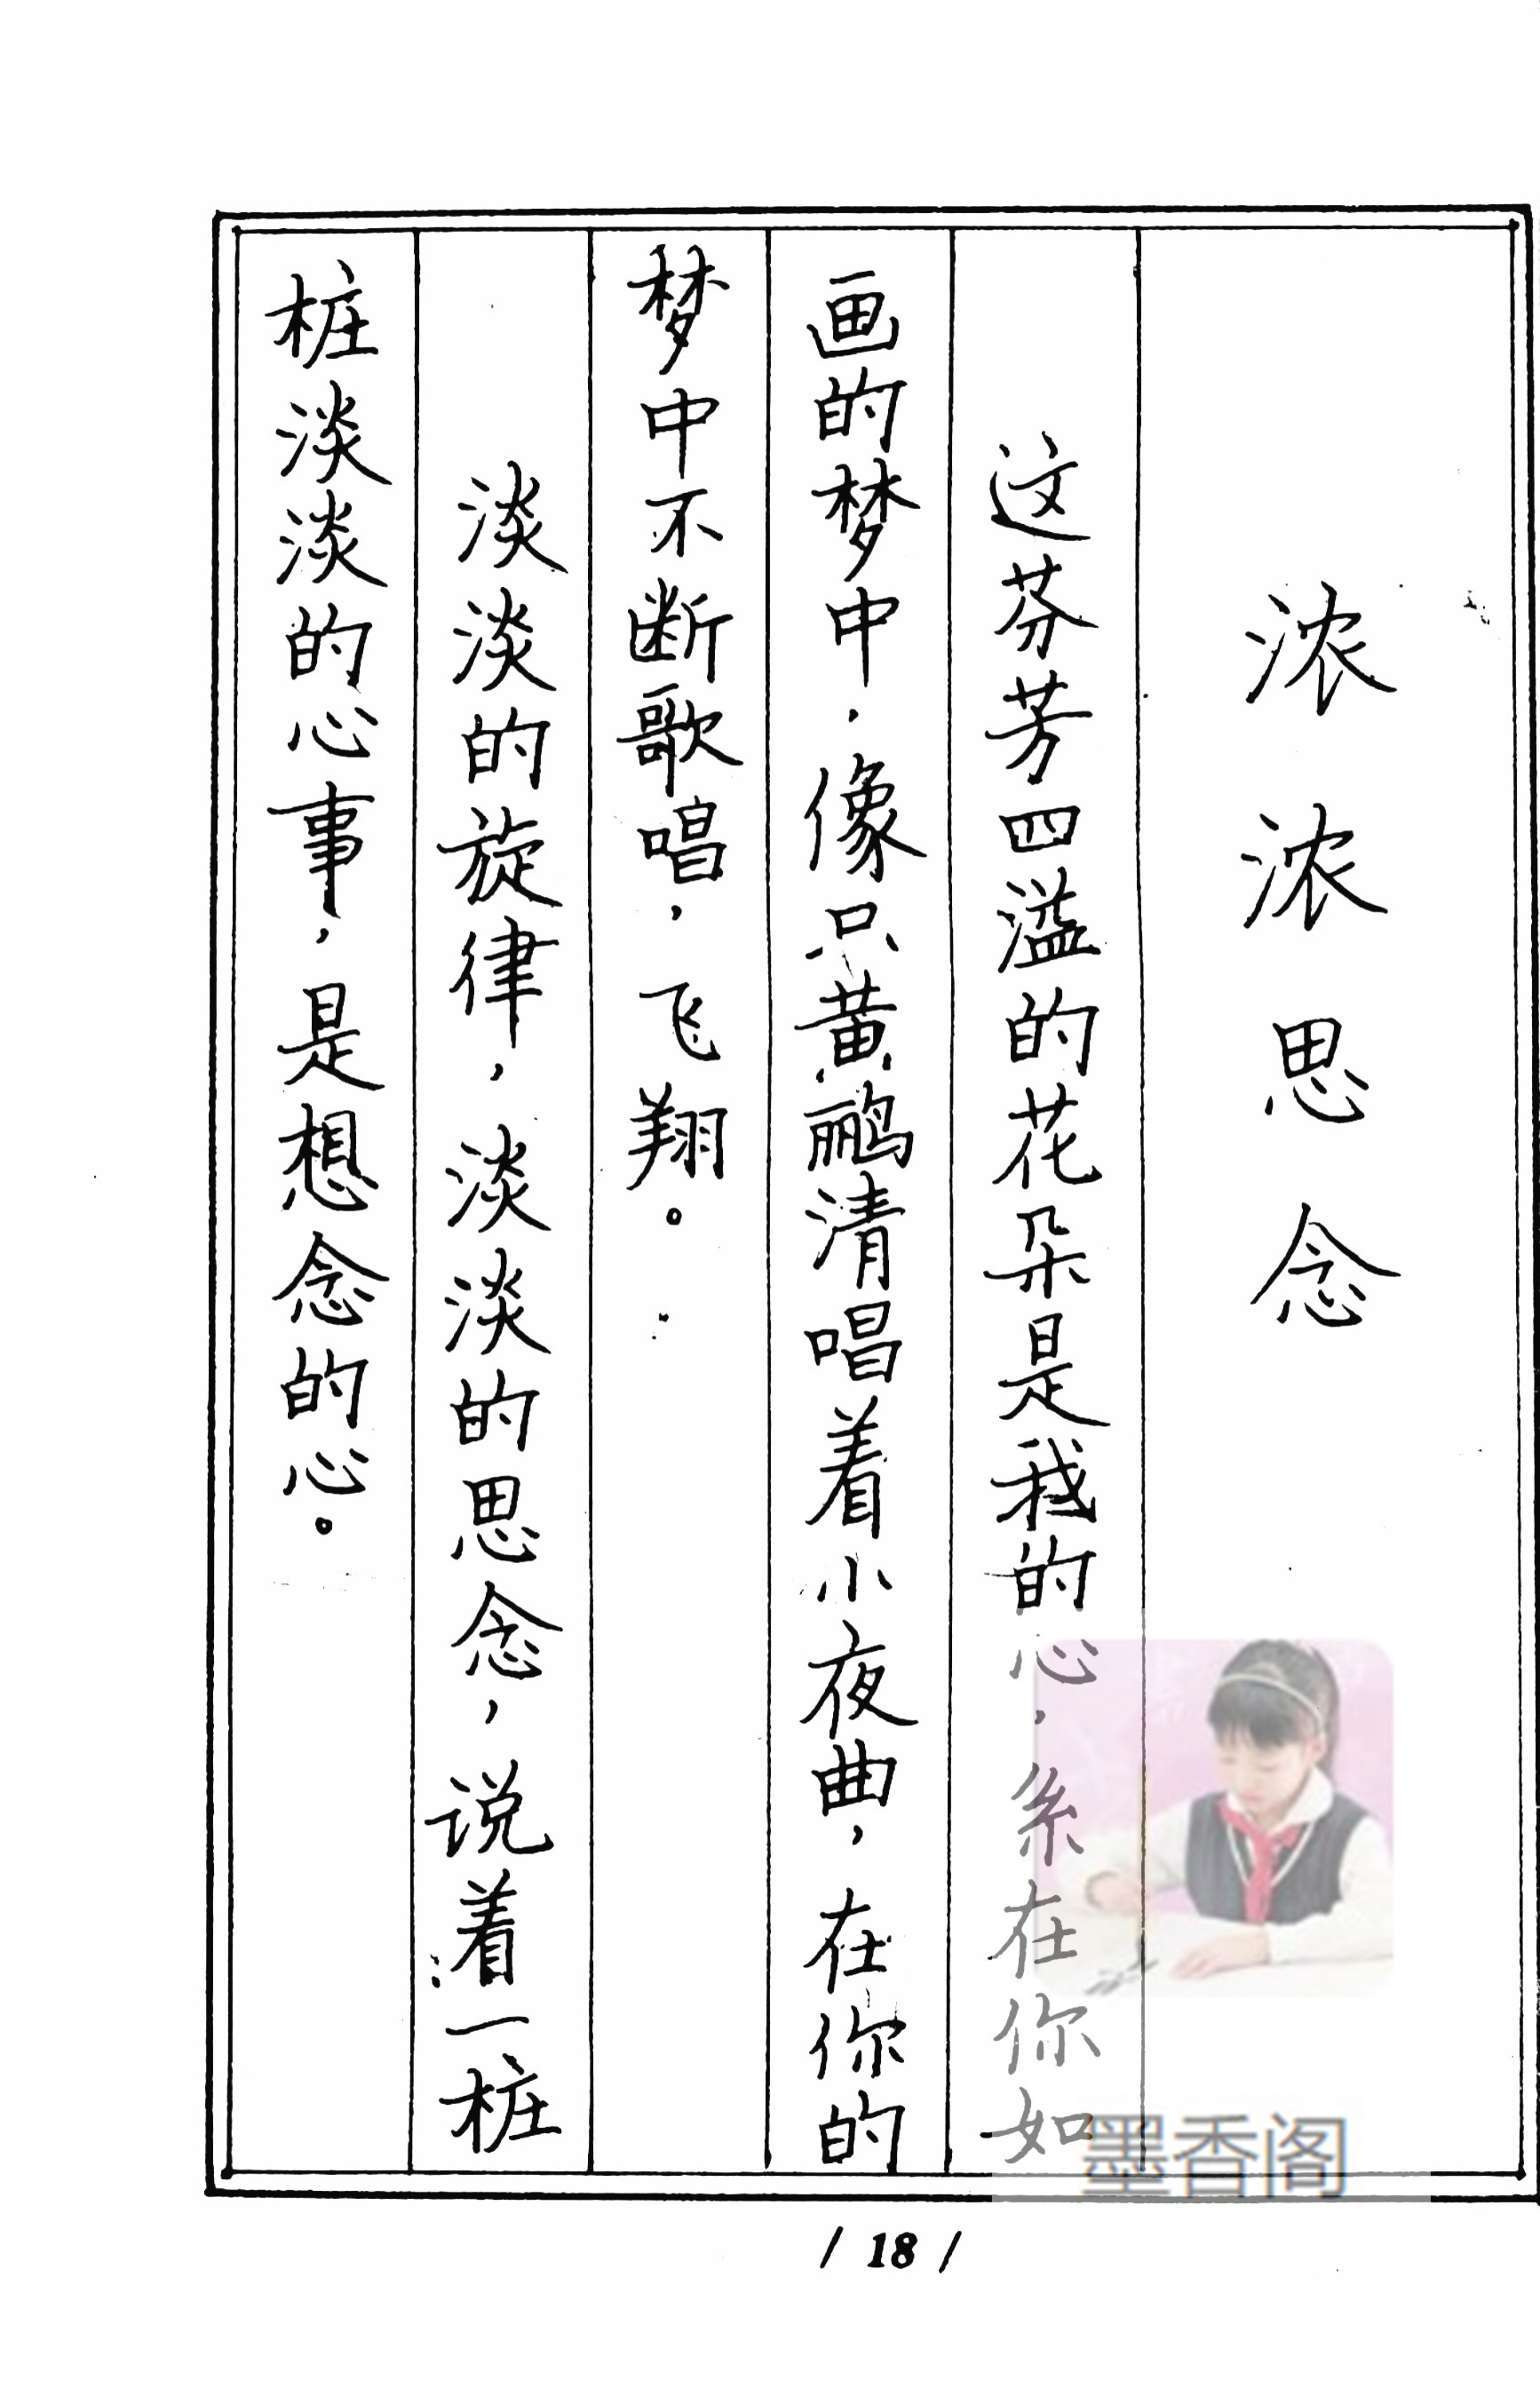 浓浓思念
这芬芳四溢的花朵是我的心，系在你如
画的梦中，像只黄鹂清唱着小夜曲，在你的
梦中不断歌唱，飞翔。
淡淡的旋律，淡淡的思念，说着一桩
桩淡淡的心事，是想念的心。
/ 18 /
墨香阁